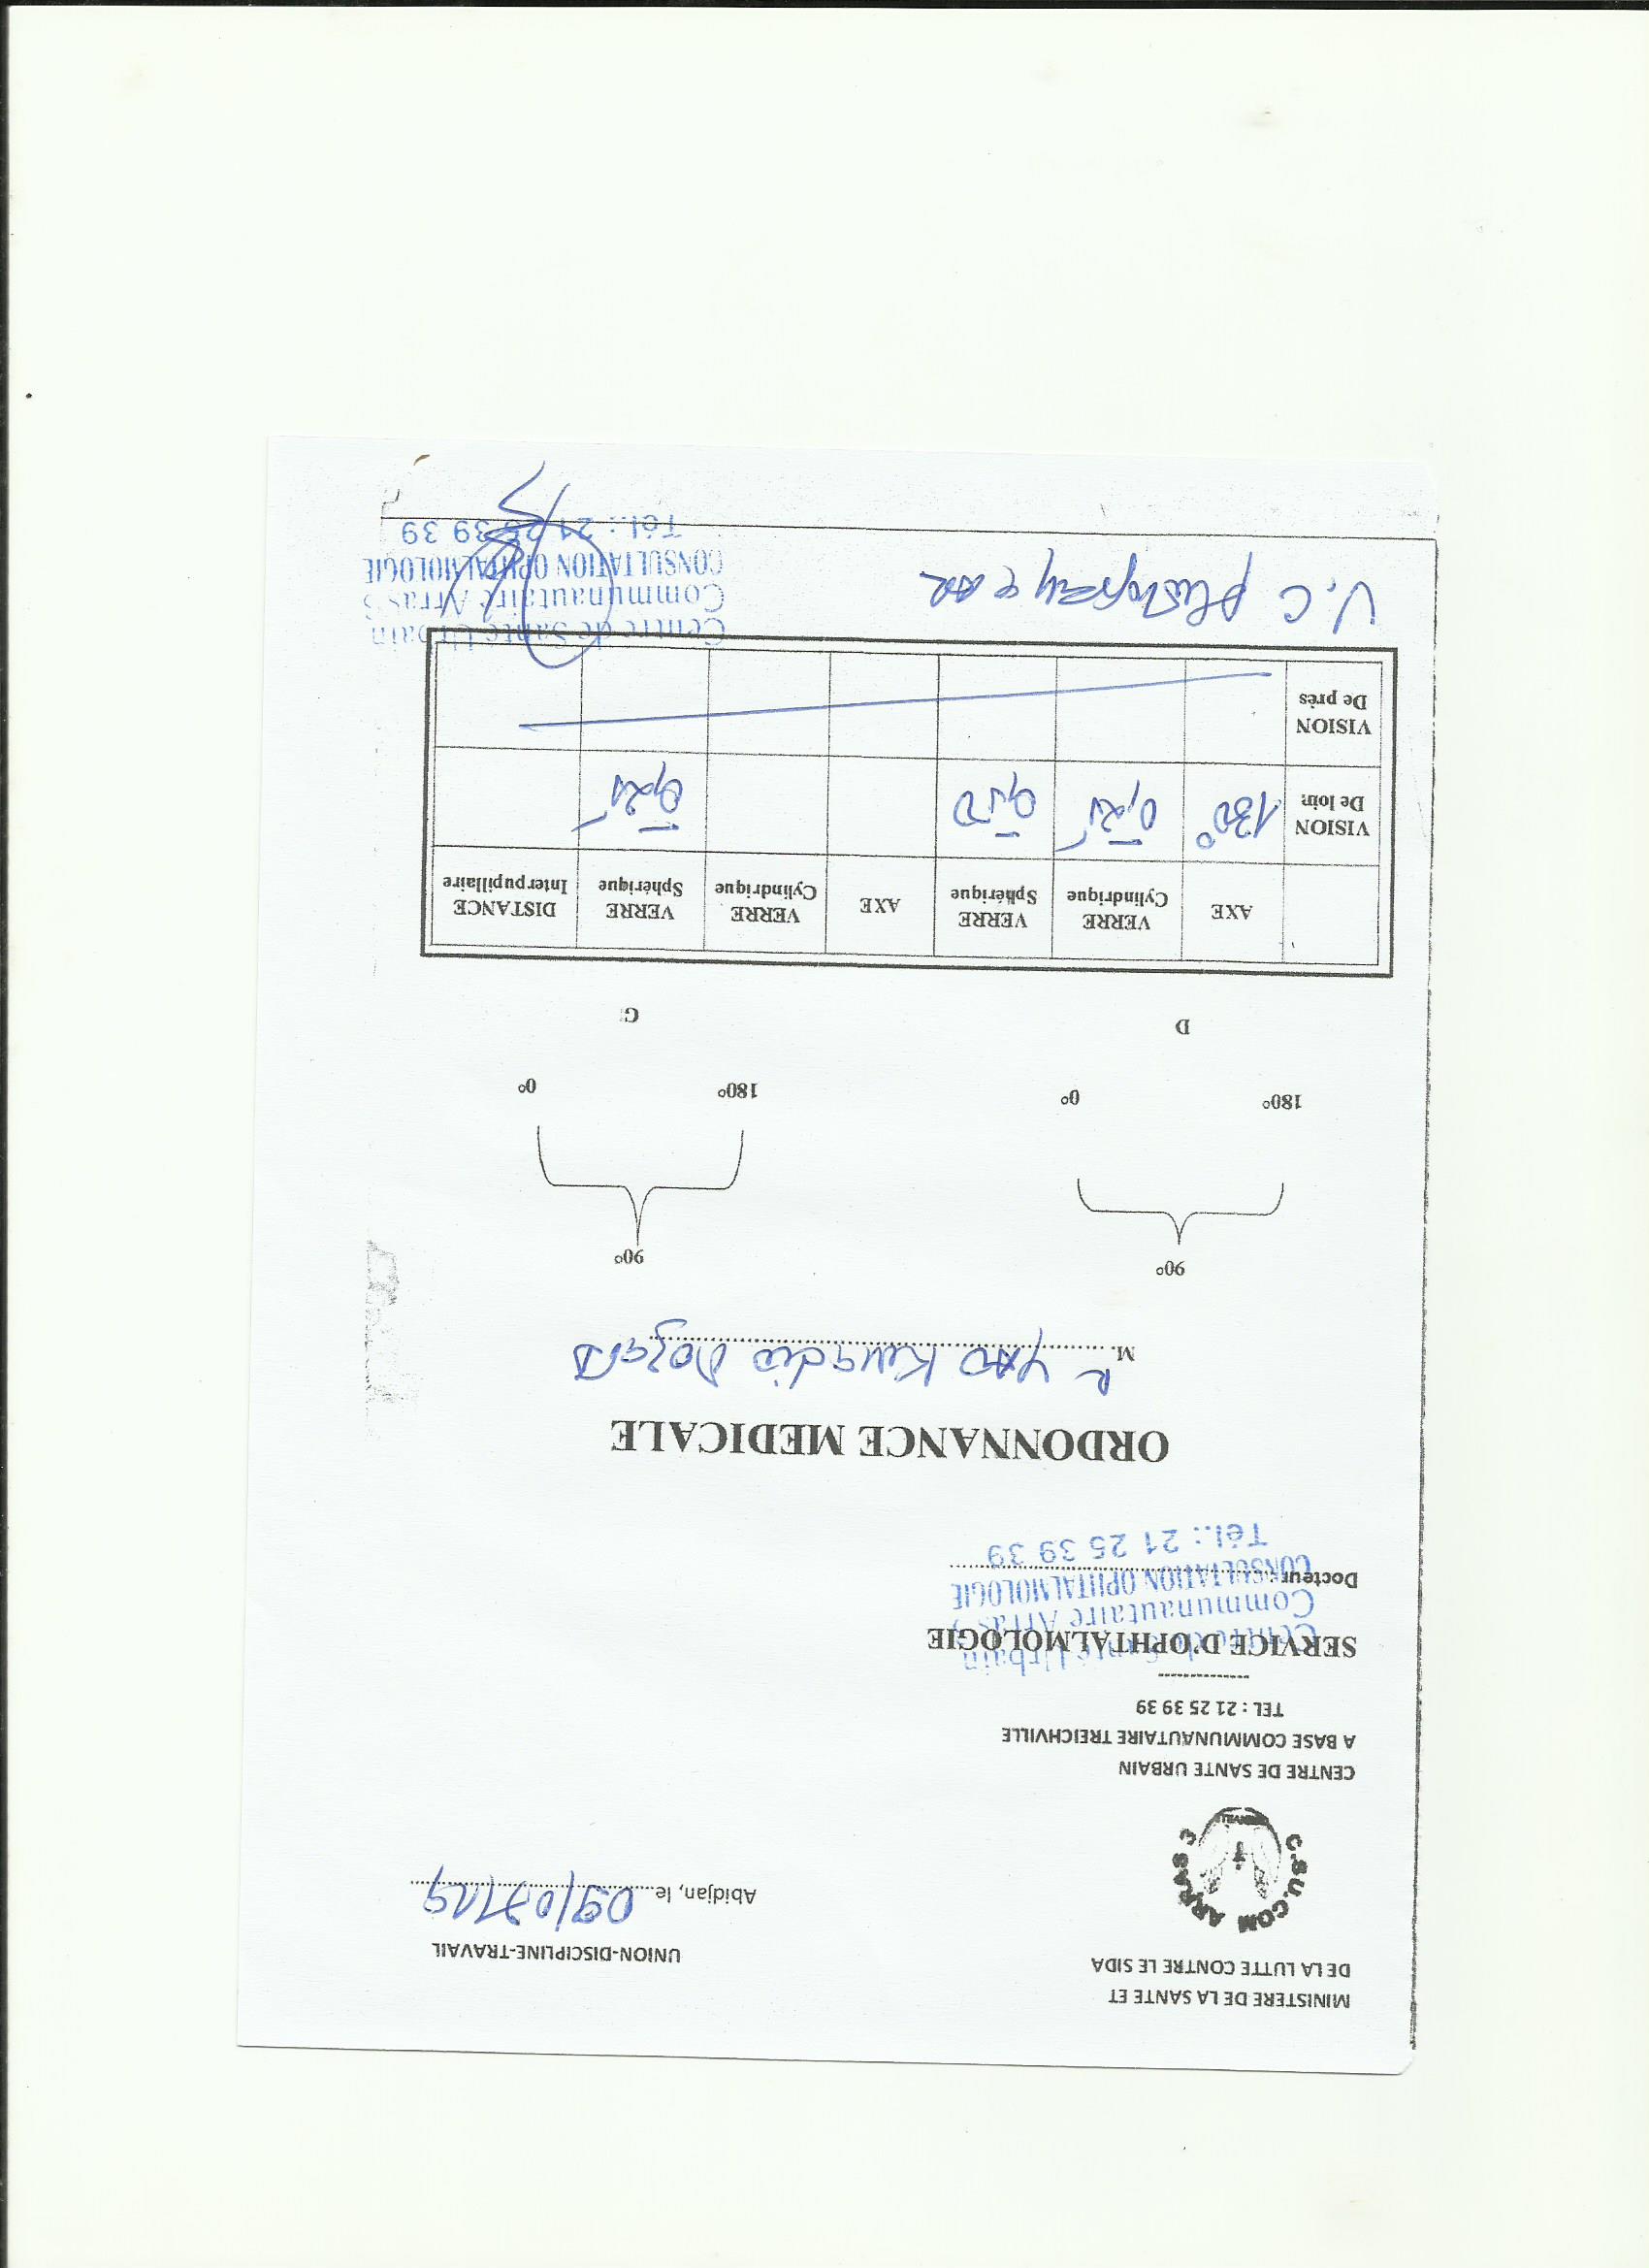 MINISTERE DE LA SANTE ET
DE LA LUTTE CONTRE LE SIDA
UNION-DISCIPLINE-TRAVAIL
Abidjan, le 09/07/19
C.SU.COM ARRAS 3
CENTRE DE SANTE URBAIN
A BASE COMMUNAUTAIRE TREICHVILLE
TEL : 21 25 39 39
SERVICE D'OPHTALMOLOGIE
Docteur :
Centre de Santé Urbain
Communautaire Arras 3
CONSULTATION OPHTALMOLOGIE
Tél.: 21 25 39 39
ORDONNANCE MEDICALE
M. R YAO
90° 90°
180° 0° 180° 0°
D G
AXE VERRE Cylindrique VERRE Sphérique AXE VERRE Cylindrique VERRE Sphérique DISTANCE Interpupillaire
VISION De loin 130° - 0,25 - 0,50 - 0,25
VISION De près
V.C AR
Centre de Santé Urbain
Communautaire Arras 3
CONSULTATION OPHTALMOLOGIE
Tél.: 21 25 39 39